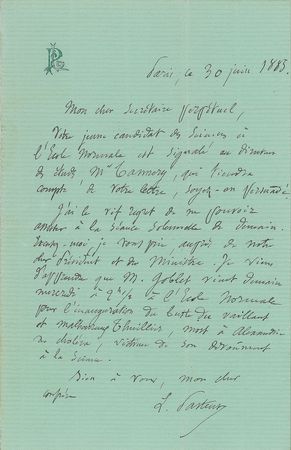 PL
Paris, ce 30 juin 1885.
Mon cher Secrétaire perpétuel,
Votre jeune candidat des Sciences à
l'École Normale est signalé au Directeur
des études, Mr Tannery, qui tiendra
compte de votre lettre, soyez-en persuadé
J'ai le vif regret de ne pouvoir
assister à la séance solennelle de demain.
Excusez-moi, je vous prie, auprès de notre
cher Président et du Ministre. Je viens
d'apprendre que M. Goblet vient demain
mercredi à 2h 1/2 à l'École Normale
pour l'inauguration du buste du vaillant
et malheureux Thuillier, mort à Alexandrie
du choléra, victime de son dévouement
à la Science.
Bien à vous, mon cher
confrère
L. Pasteur